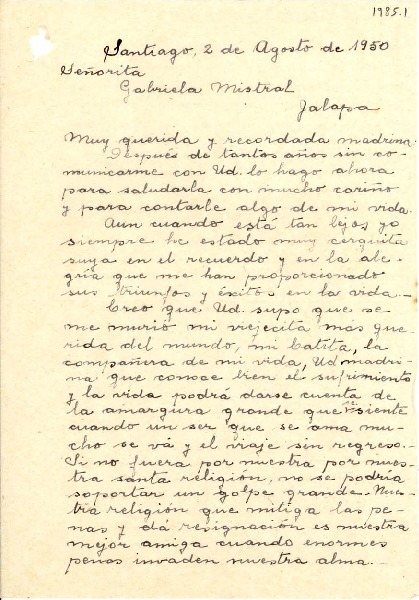 1985.1
Santiago, 2 de Agosto de 1950
Señorita
Gabriela Mistral
Jalapa
Muy querida y recordada madrina.
Después de tantos años sin co-
municarme con Ud. lo hago ahora
para saludarla con mucho cariño
y para contarle algo de mi vida.
Aun cuando está tan lejos yo
siempre he estado muy cerquita
suya en el recuerdo y en la ale-
gría que me han proporcionado
sus triunfos y éxitos en la vida.-
Creo que Ud. supo que se
me murió mi viejecita más que-
rida del mundo, mi Catita, la
compañera de mi vida, Ud madri-
na que conoce bien el sufrimiento
y la vida podrá darse cuenta de
la amargura grande que se siente
cuando un ser que se ama mu-
cho se vá y el viaje sin regreso.-
Si no fuera por nuestra por nues-
tra santa religión, no se podría
soportar un golpe grande. Nues-
tra religión que mitiga las pe-
nas y dá resignación es nuestra
mejor amiga cuando enormes
penas invaden nuestra alma.-